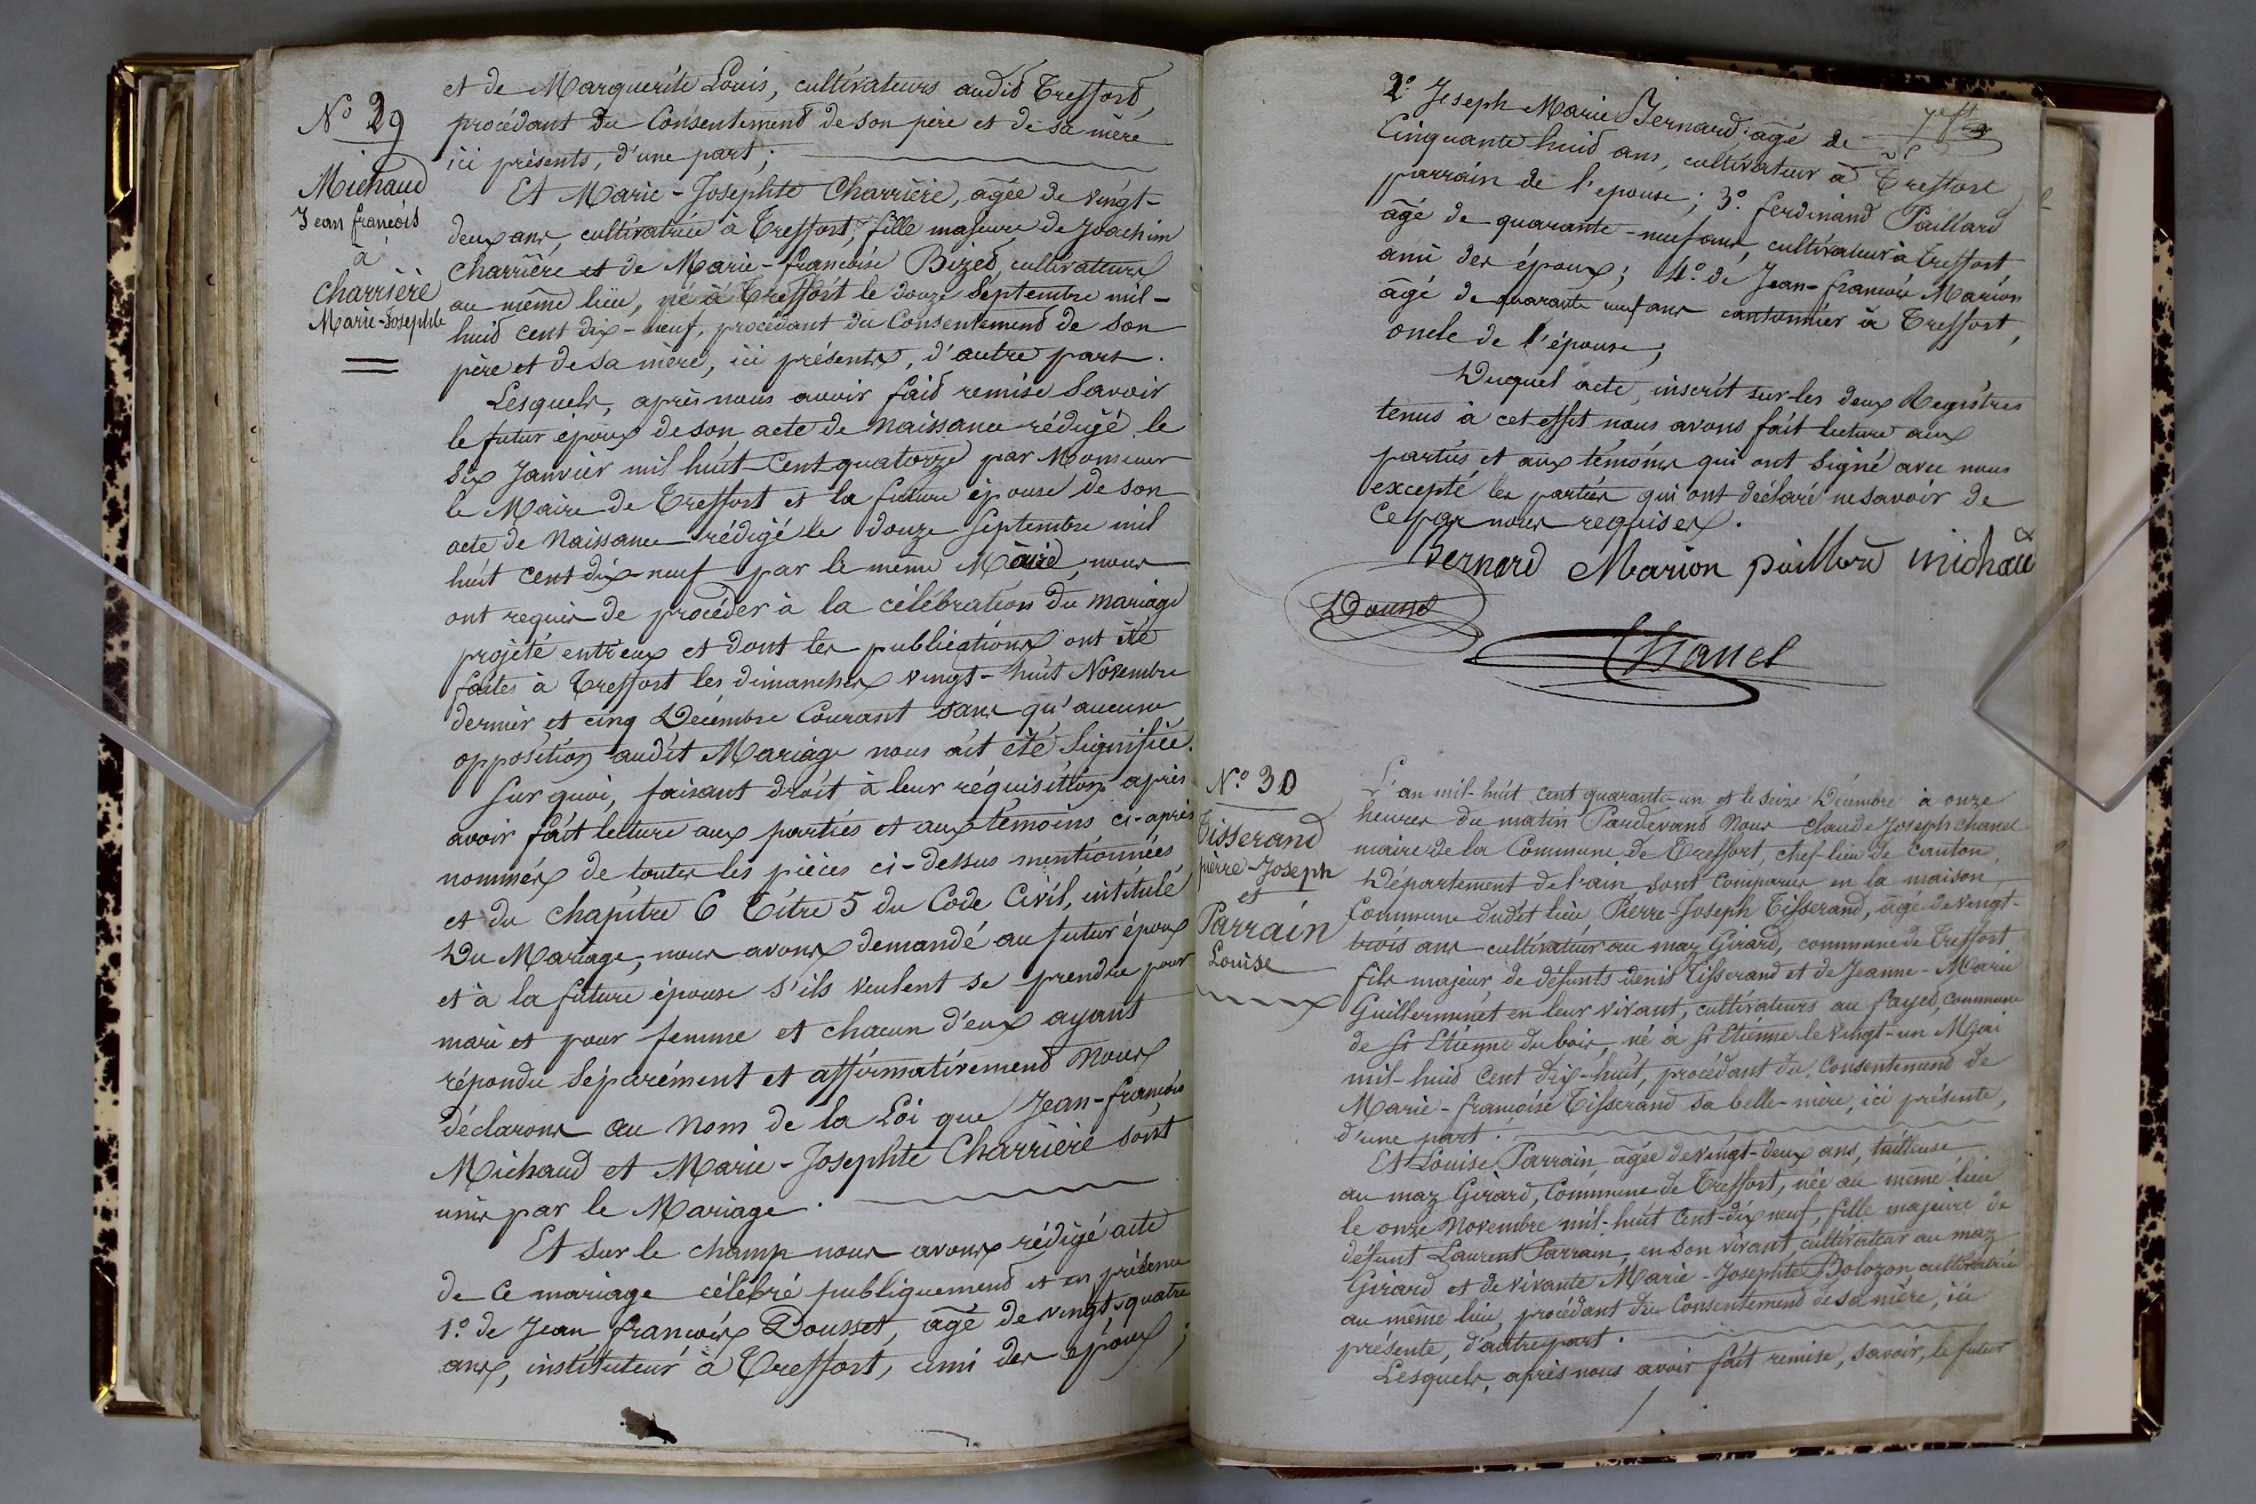 N° 29
Michaud
Jean françois
à
Charrière
Marie-Josephte
et de Marguerite Louis, cultivateurs audit Treffort,
procédant du Consentement de son père et de sa mère
ici présents, d'une part;
Et Marie-Josephte Charrière, agée de vingt-
deux ans, cultivatrice à Treffort, fille majeure de Joachim
Charrière et de Marie-françoise Bizet, cultivateurs
au même lieu, né à Treffort le douze Septembre mil-
huit cent dix-neuf, procédant du Consentement de son
père et de sa mère, ici présents, d'autre part.
Lesquels, après nous avoir fait remise Savoir
le futur époux de son acte de Naissance rédigé le
Six Janvier mil huit-Cent quatorze par Monsieur
le Maire de Treffort et la future épouse de son
acte de Naissance rédigé le douze Septembre mil
huit cent dix-neuf par le même Maire, nous
ont requis de procéder à la célébration du mariage
projeté entr'eux et dont les publications ont été
faites à Treffort les dimanches vingt-huit Novembre
dernier et cinq Décembre Courant sans qu'aucune
opposition audit Mariage nous ait été Signifiée.
Sur quoi, faisant droit à leur réquisition après
avoir fait lecture aux parties et aux témoins ci-après
nommés de toutes les pièces ci-dessus mentionnées,
et du chapitre 6 Titre 5 du Code Civil, intitulé
Du Mariage, nous avons demandé au futur époux
et à la future épouse s'ils veulent se prendre pour
mari et pour femme et chacun d'eux ayant
répondu Séparément et affirmativement Nous
déclarons au Nom de la Loi que Jean-françois
Michaud et Marie-Josephte Charrière sont
unis par le Mariage.
Et sur le champ nous avons rédigé acte
de Ce mariage célébré publiquement et en présence
1° de Jean françois Dousset, âgé de vingt-quatre
ans, instituteur à Treffort, ami des époux;
2° Joseph Marie Bernard, agé de
Cinquante huit ans, cultivateur à Treffort
parrain de l'epouse; 3° ferdinand Paillard
âgé de quarante-neuf ans, cultivateur à Treffort
ami des époux; 4° de Jean-françois Marion
âgé de quarante neuf ans cantonnier à Treffort,
oncle de l'épouse;
Duquel acte, inscrit sur les deux Registres
tenus à cet effet nous avons fait lecture aux
parties et aux témoins qui ont Signé avec nous
excepté les parties qui ont déclaré ne savoir de
ce par nous requises.
Bernard Marion paillard michau
Dousset
Chanel
N° 30
Tisserand
pierre-Joseph
et
Parrain
Louise
L'an mil-huit cent quarante-un et le seize Décembre à onze
heures du matin Pardevant Nous Claude Joseph Chanel
maire de la Commune de Treffort, chef-lieu de Canton,
Département de l'ain, sont comparus en la maison
Commune dudit lieu Pierre-Joseph Tisserand, âgé de vingt-
trois ans cultivateur au maz Girard, commune de Treffort
fils majeur, de défunts denis Tisserand et de Jeanne-Marie
Guillerminet en leur vivant, cultivateurs au fayet, Commune
de St Etienne du bois, né à St Etienne le vingt-un Mai
mil-huit Cent dix-huit, procédant du Consentement de
Marie-françoise Tisserand sa belle-mère, ici présente,
d'une part.
Et Louise Parrain agée de vingt-deux ans, tailleuse
au maz Girard, Commune de Treffort, née au même lieu
le onze Novembre mil-huit Cent-dix neuf, fille majeure de
défunt Laurent Parrain, en son vivant, cultivateur au maz
Girard et de vivante Marie-Josephte Bolozon cultivatrice
au même lieu, procédant du Consentement de sa mère, ici
présente, d'autre part.
Lesquels, après nous avoir fait remise, savoir, le futur